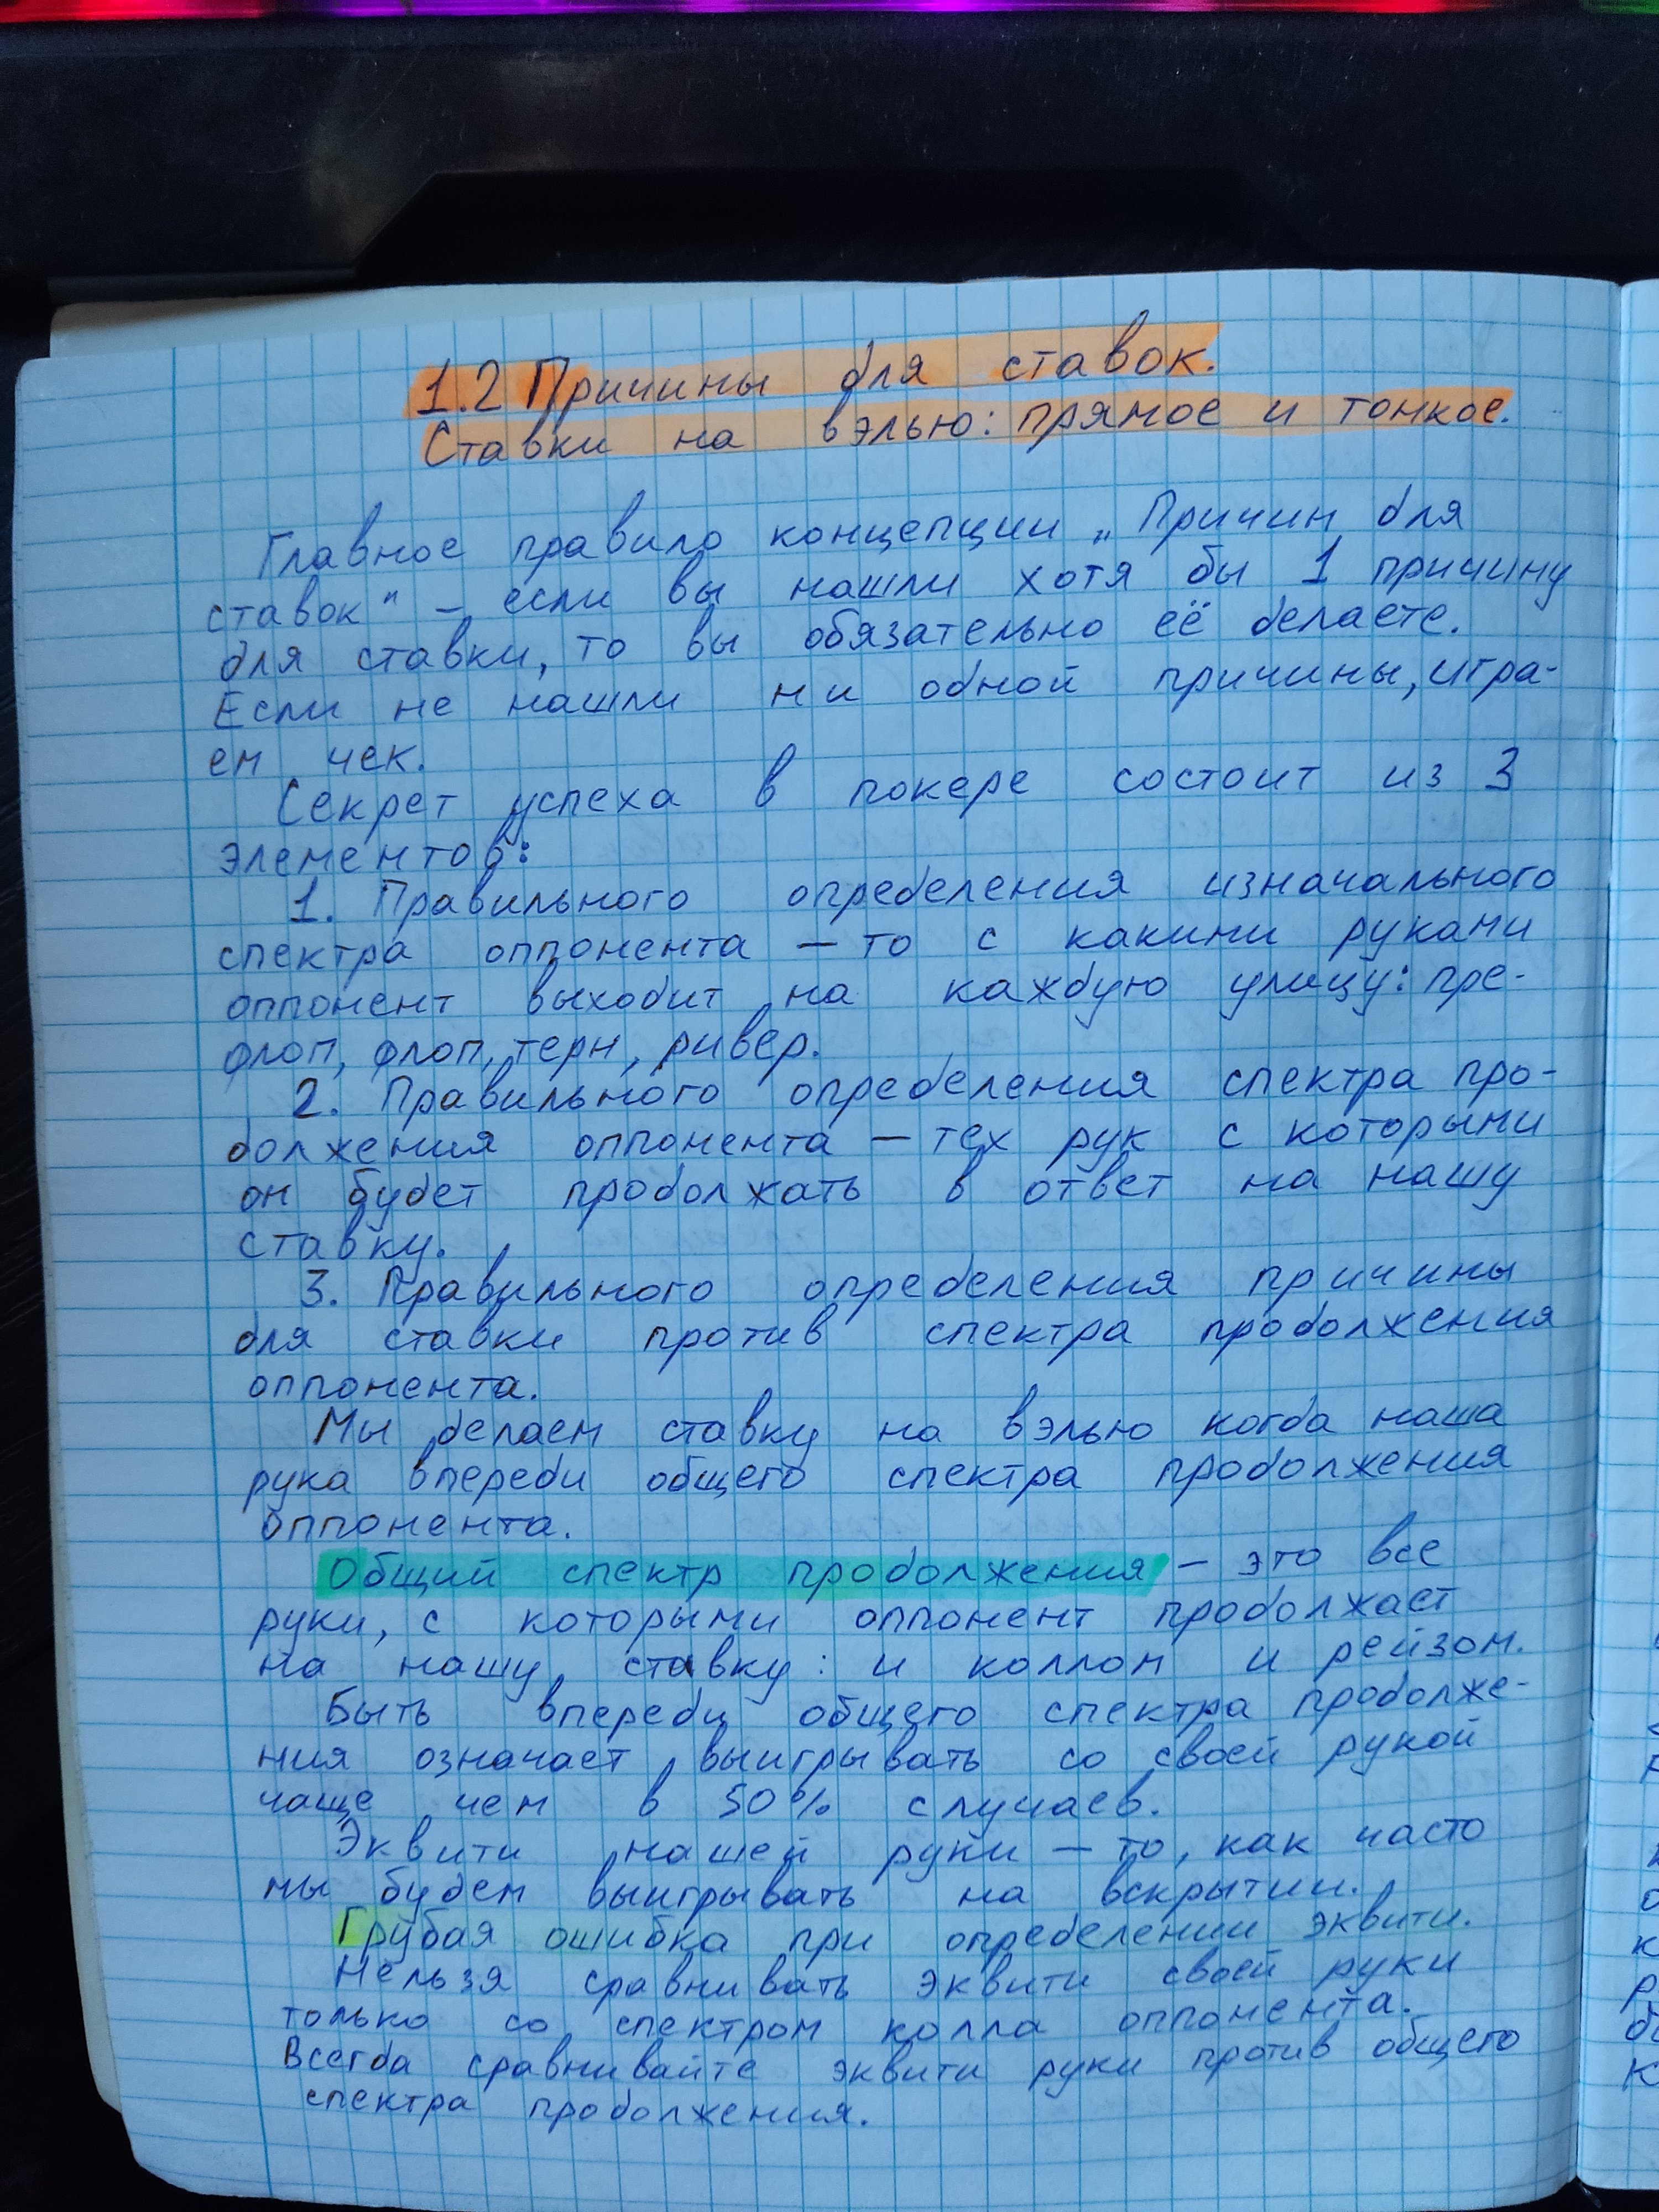 1.2 Причины для ставок.
Ставки на вэлью: прямое и тонкое.
Главное правило концепции „Причин для
ставок" – если вы нашли хотя бы 1 причину
для ставки, то вы обязательно её делаете.
Если не нашли ни одной причины, игра-
ем чек.
Секрет успеха в покере состоит из 3
элементов:
1. Правильного определения изначального
спектра оппонента – то с какими руками
оппонент выходит на каждую улицу: пре-
флоп, флоп, терн, ривер.
2. Правильного определения спектра про-
должения оппонента – тех рук с которыми
он будет продолжать в ответ на нашу
ставку.
3. Правильного определения причины
для ставки против спектра продолжения
оппонента.
Мы делаем ставку на вэлью когда наша
рука впереди общего спектра продолжения
оппонента.
Общий спектр продолжения – это все
руки, с которыми оппонент продолжает
на нашу ставку: и коллом и рейзом.
Быть впереди общего спектра продолже-
ния означает выигрывать со своей рукой
чаще чем в 50% случаев.
Эквити нашей руки – то, как часто
мы будем выигрывать на вскрытии.
Грубая ошибка при определении эквити.
Нельзя сравнивать эквити своей руки
только со спектром колла оппонента.
Всегда сравнивайте эквити руки против общего
спектра продолжения.